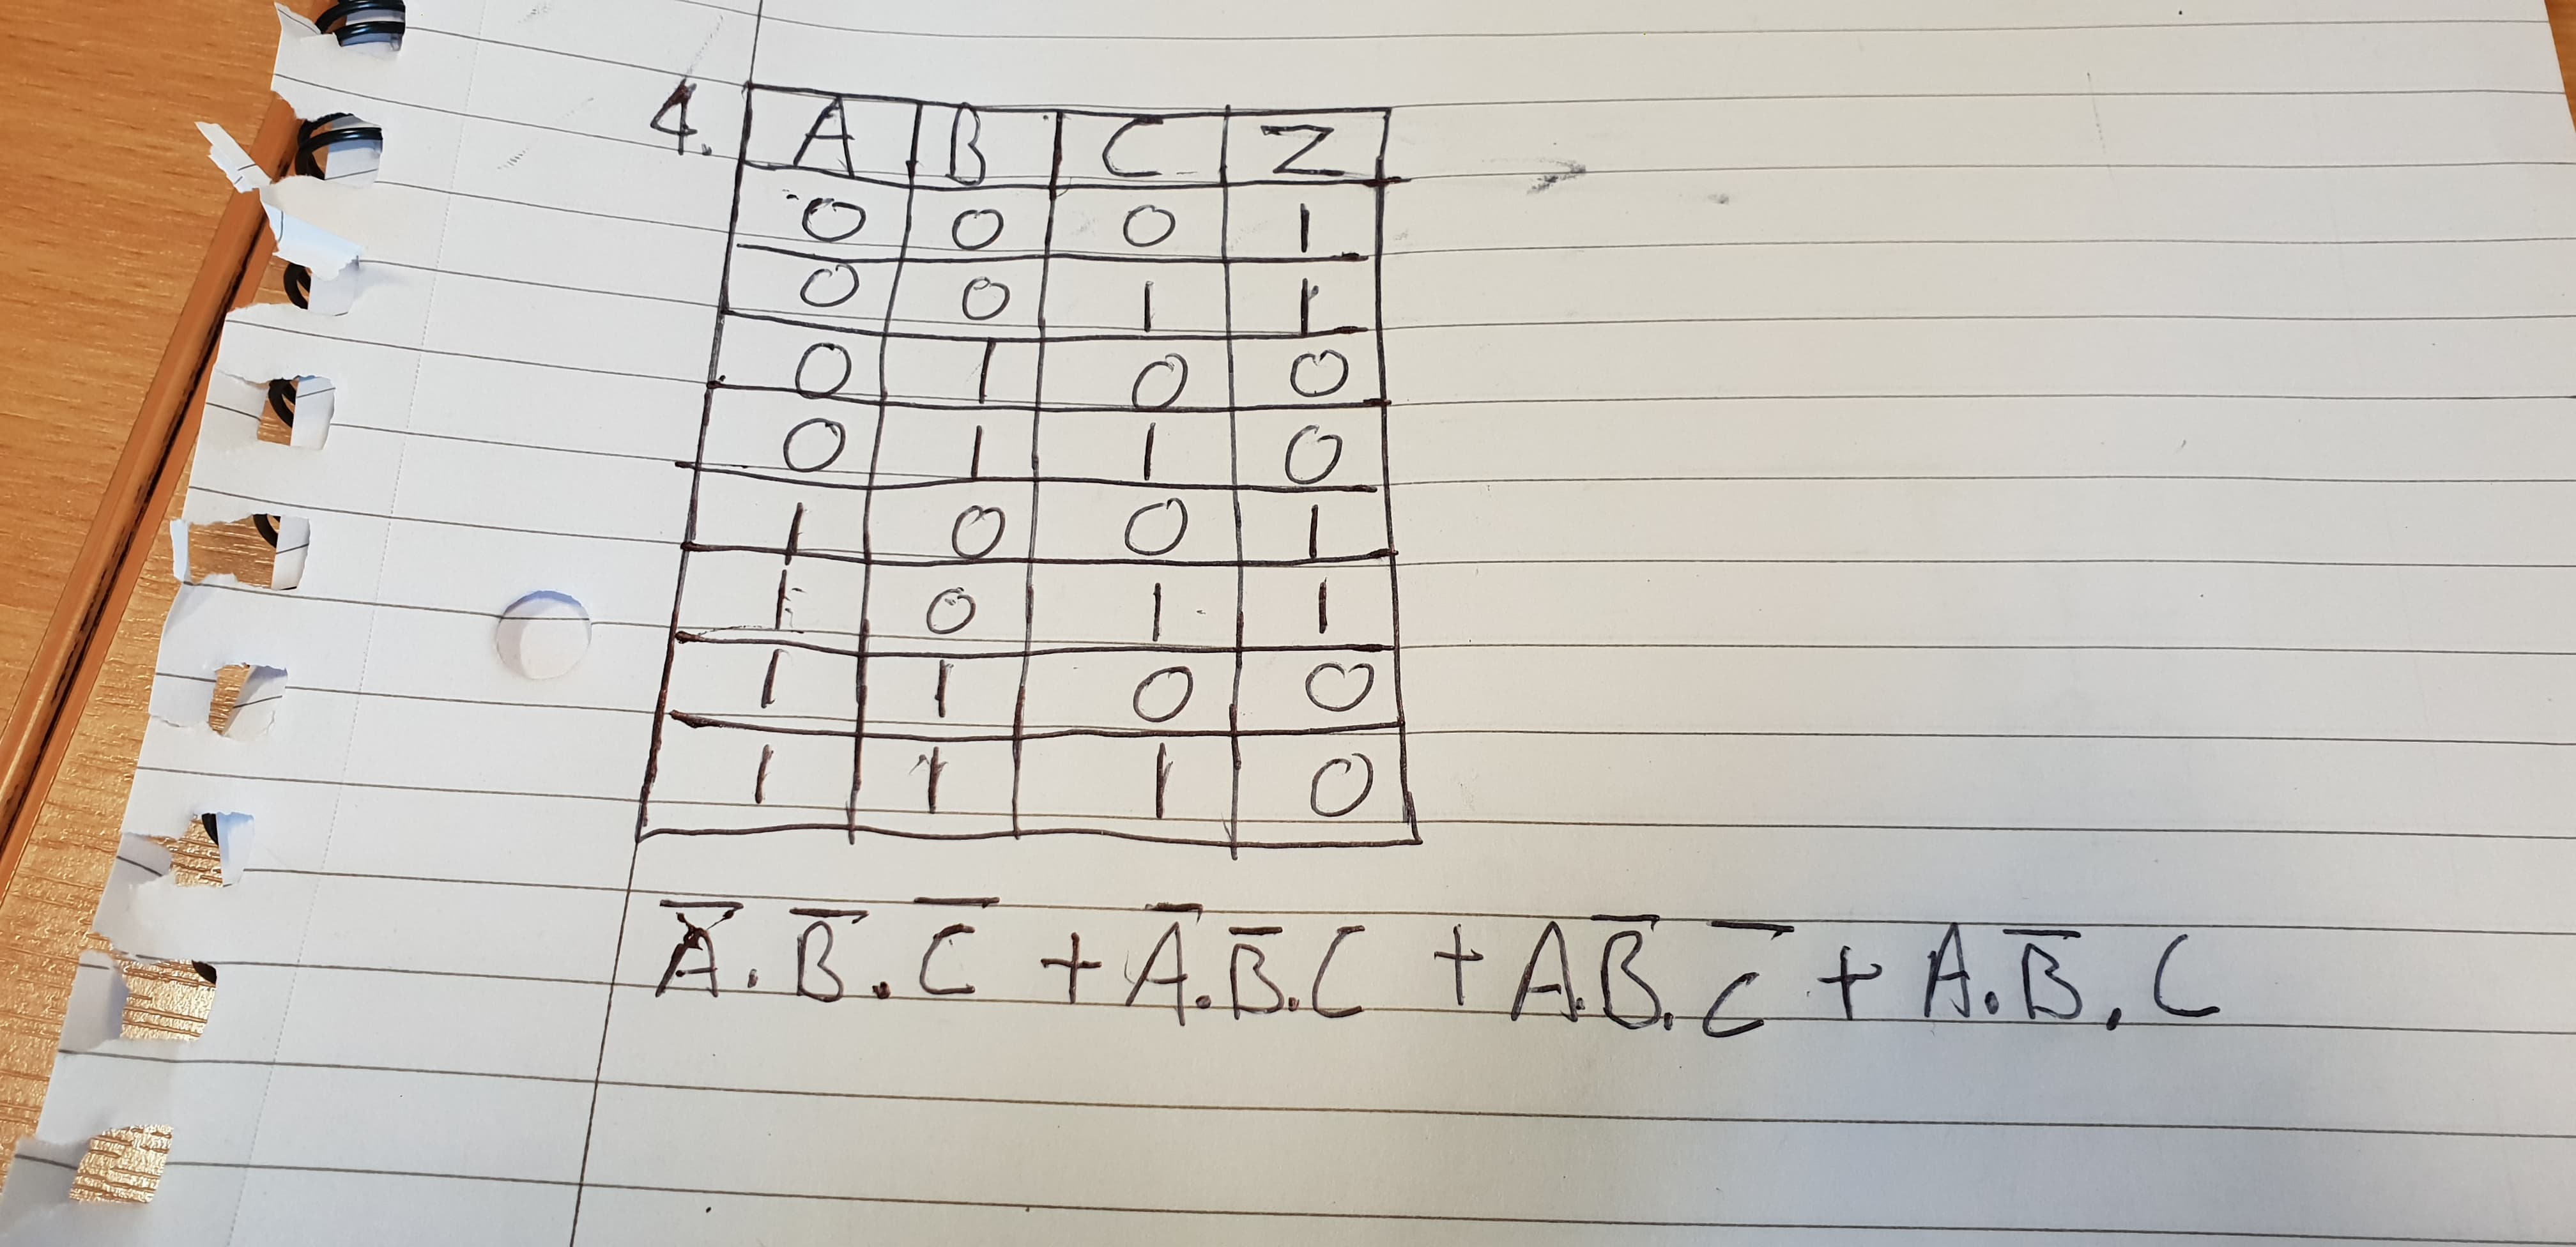 4. A B C Z
0 0 0 1
0 0 1 1
0 1 0 0
0 1 1 0
1 0 0 1
1 0 1 1
1 1 0 0
1 1 1 0
A̅.B̅.C̅ + A̅.B̅.C + A.B̅.C̅ + A.B̅.C